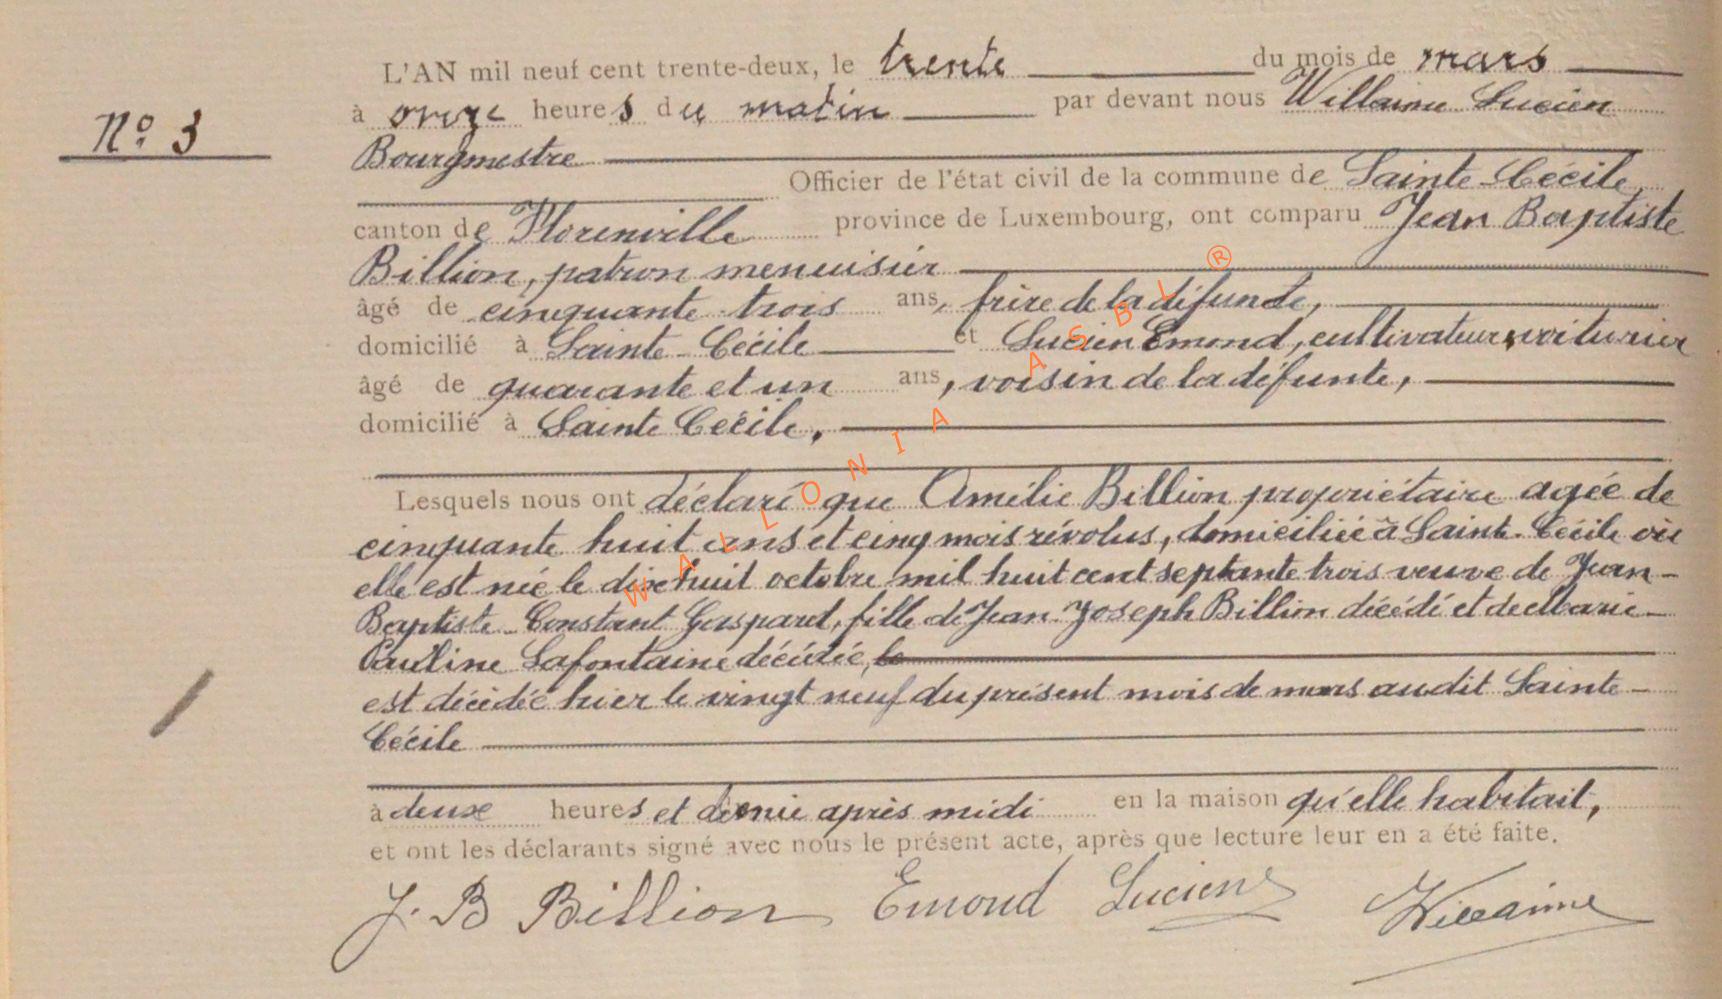 L'AN mil neuf cent trente-deux, le trente du mois de mars
N° 3
à onze heures du matin par devant nous Willaime Lucien
Bourgmestre
Officier de l'état civil de la commune de Sainte-Cécile,
canton de Florenville province de Luxembourg, ont comparu Jean Baptiste
Billion, patron menuisier
âgé de cinquante trois ans, frère de la défunte,
domicilié à Sainte-Cécile et Lucien Emond, cultivateur, voiturier
âgé de quarante et un ans, voisin de la défunte,
domicilié à Sainte Cécile.
Lesquels nous ont déclaré que Amélie Billion propriétaire agée de
cinquante huit ans et cinq mois révolus, domiciliée à Sainte-Cécile où
elle est née le dix huit octobre mil huit cent septante trois veuve de Jean-
Baptiste Constant Gaspard, fille de Jean Joseph Billion décédé et de Marie-
Pauline Lafontaine décédée, le
est décédée hier le vingt neuf du présent mois de mars audit Sainte-
Cécile
à deux heures et demie après midi en la maison qu'elle habitait,
et ont les déclarants signé avec nous le présent acte, après que lecture leur en a été faite.
J. B Billion Emond Lucien Willaime
WALLONIA ASBL ®